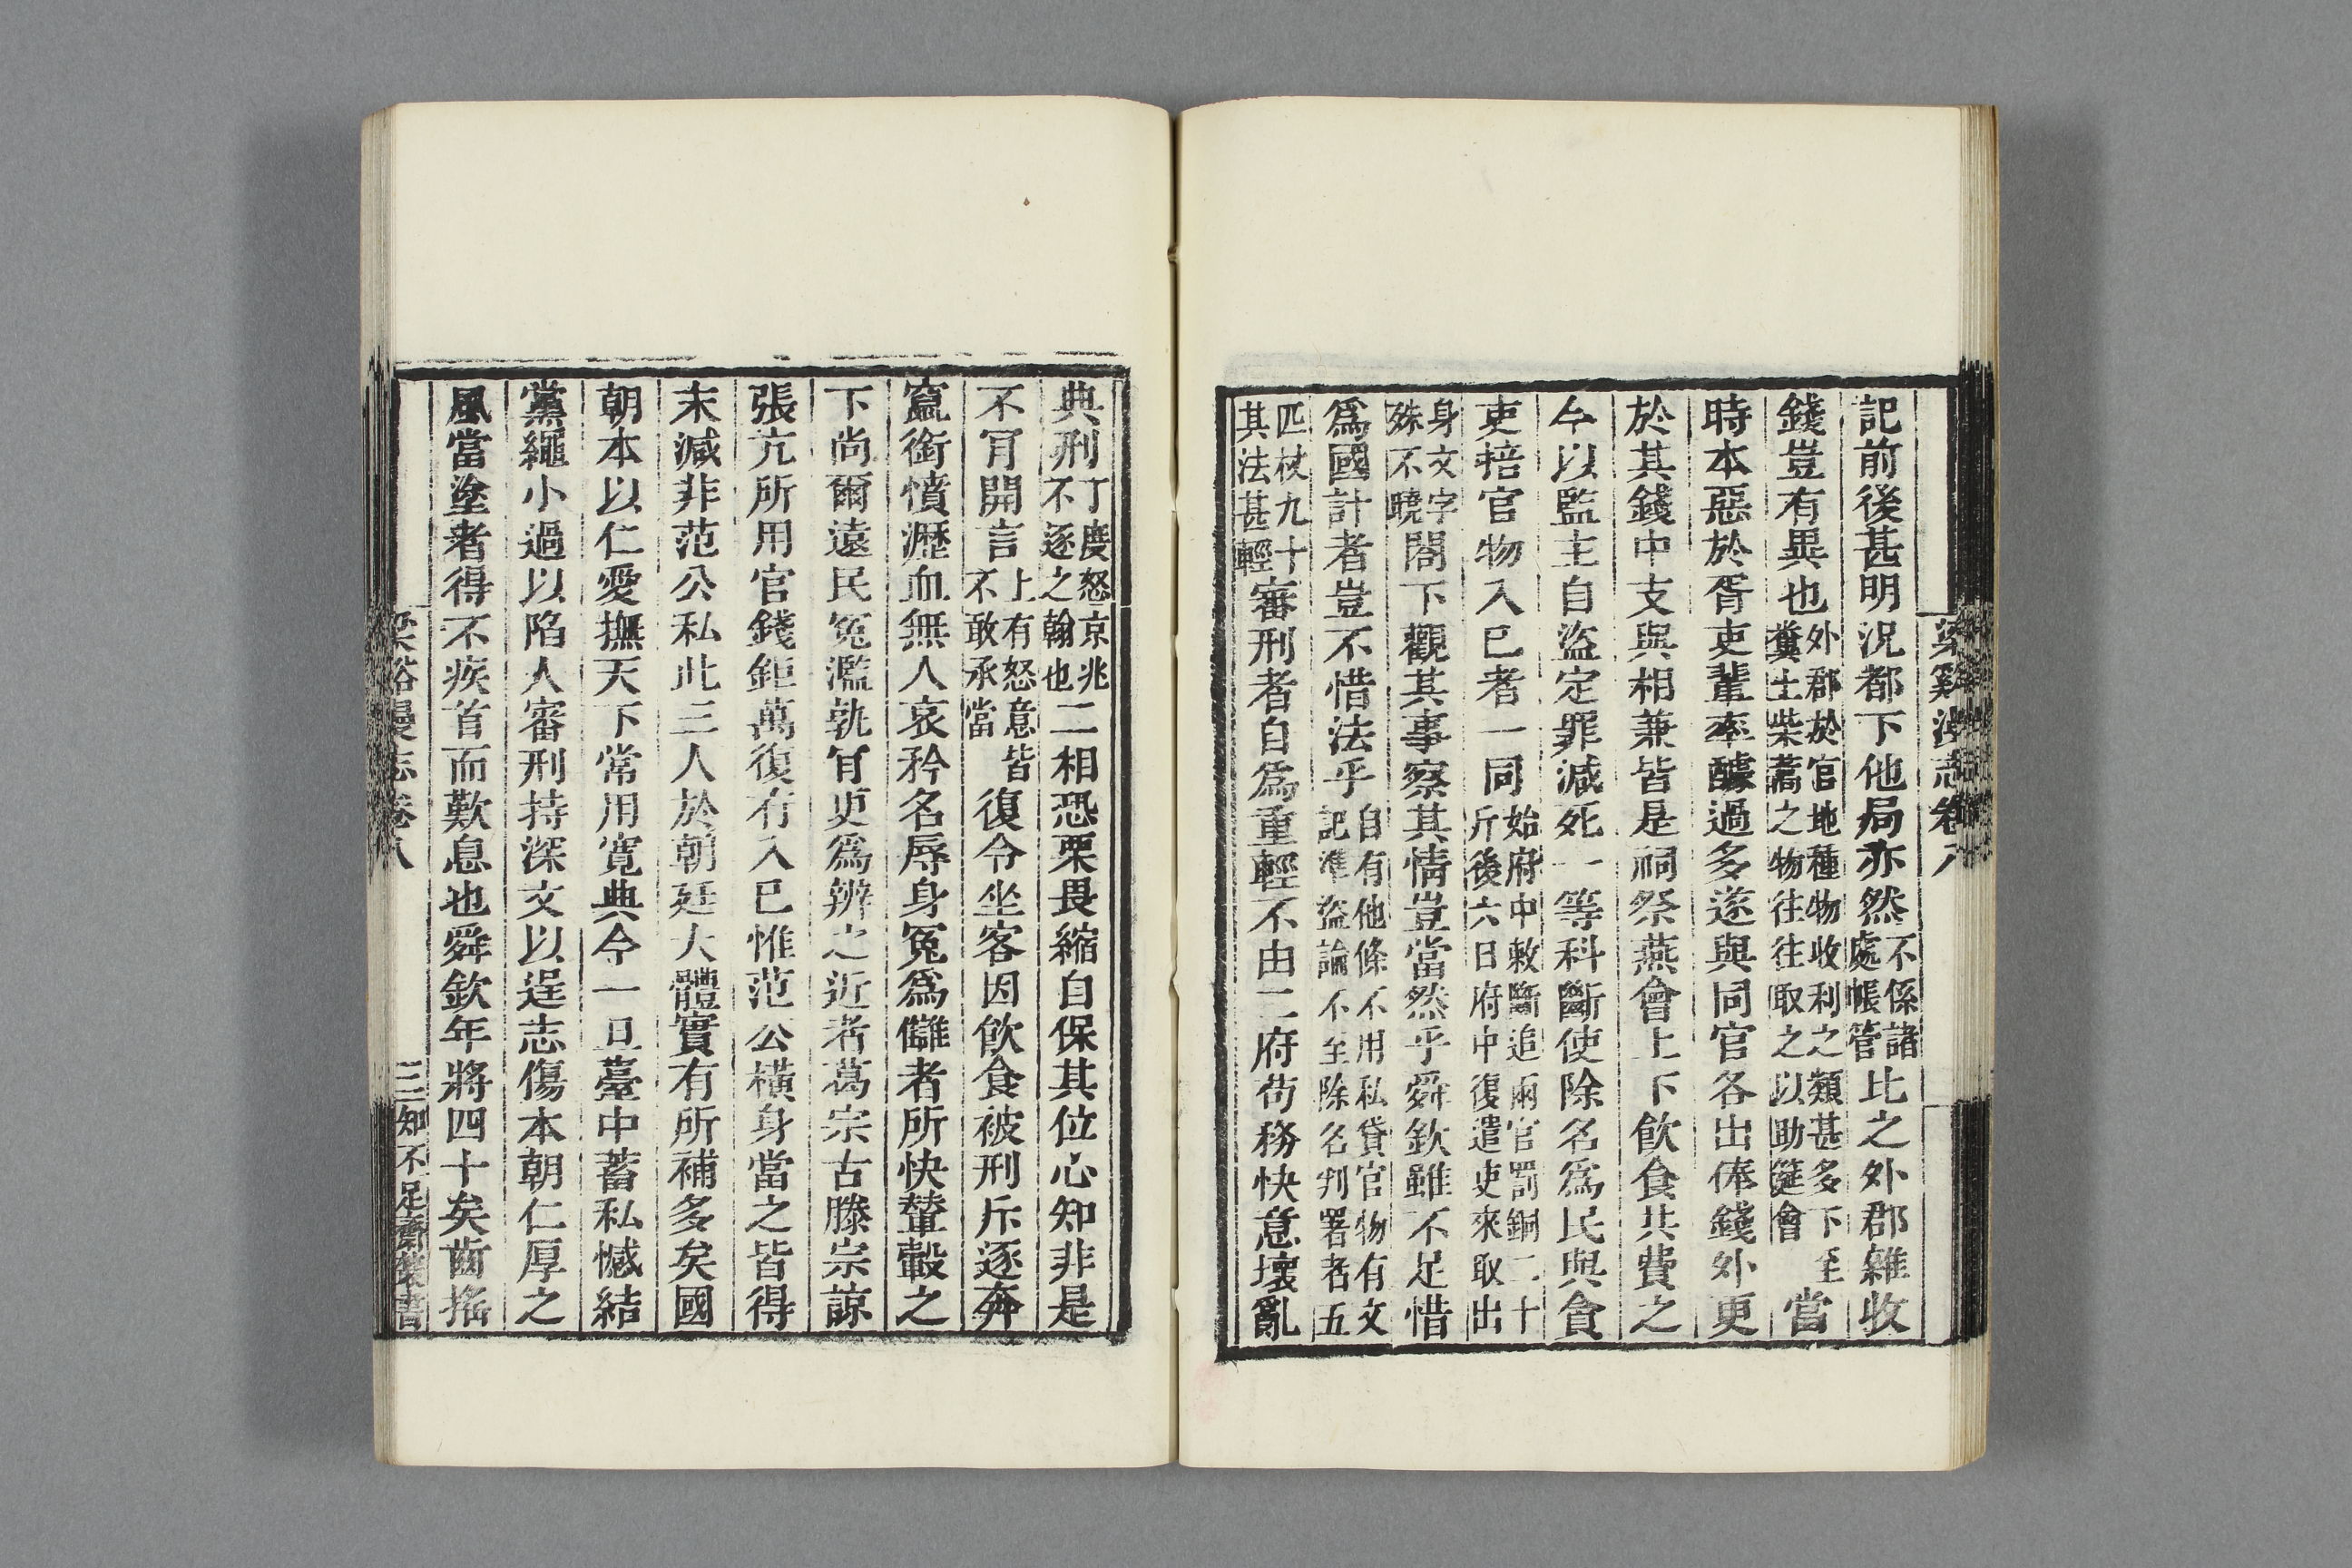 梁谿漫志卷八
記前後甚明況都下他局亦然不係諸處帳管比之外郡雜收
錢豈有異也外郡於官地種物收利之類甚多下至糞土柴蒿之物往往取之以助筵會當
時本惡於胥吏輩率醵過多遂與同官各出俸錢外更
於其錢中支與相兼皆是祠祭燕會上下飲食共費之
今以監主自盜定罪減死一等科斷使除名爲民與貪
吏掊官物入已者一同始府中敕斷追兩官罰銅二十斤後六日府中復遣吏來取出
身文字殊不曉閤下觀其事察其情豈當然乎舜欽雖不足惜
爲國計者豈不惜法乎自有他條不用私貸官物有文記準盜論不至除名判署者五
匹杖九十其法甚輕審刑者自爲重輕不由二府苟務快意壞亂
典刑丁度怒京兆不逐之翰也二相恐栗畏縮自保其位心知非是
不肎開言上有怒意皆不敢承當復令坐客因飲食被刑斥逐奔
竄銜憤瀝血無人哀矜名辱身冤爲讎者所快輦轂之
下尚爾遠民冤濫孰肎更爲辨之近者葛宗古滕宗諒
張亢所用官錢鉅萬復有入已惟范公橫身當之皆得
末減非范公私此三人於朝廷大體實有所補多矣國
朝本以仁愛撫天下常用寬典今一旦臺中蓄私憾結
黨繩小過以陷人審刑持深文以逞志傷本朝仁厚之
風當塗者得不疾首而歎息也舜欽年將四十矣齒搖
梁谿漫志卷八
三知不足齋叢書